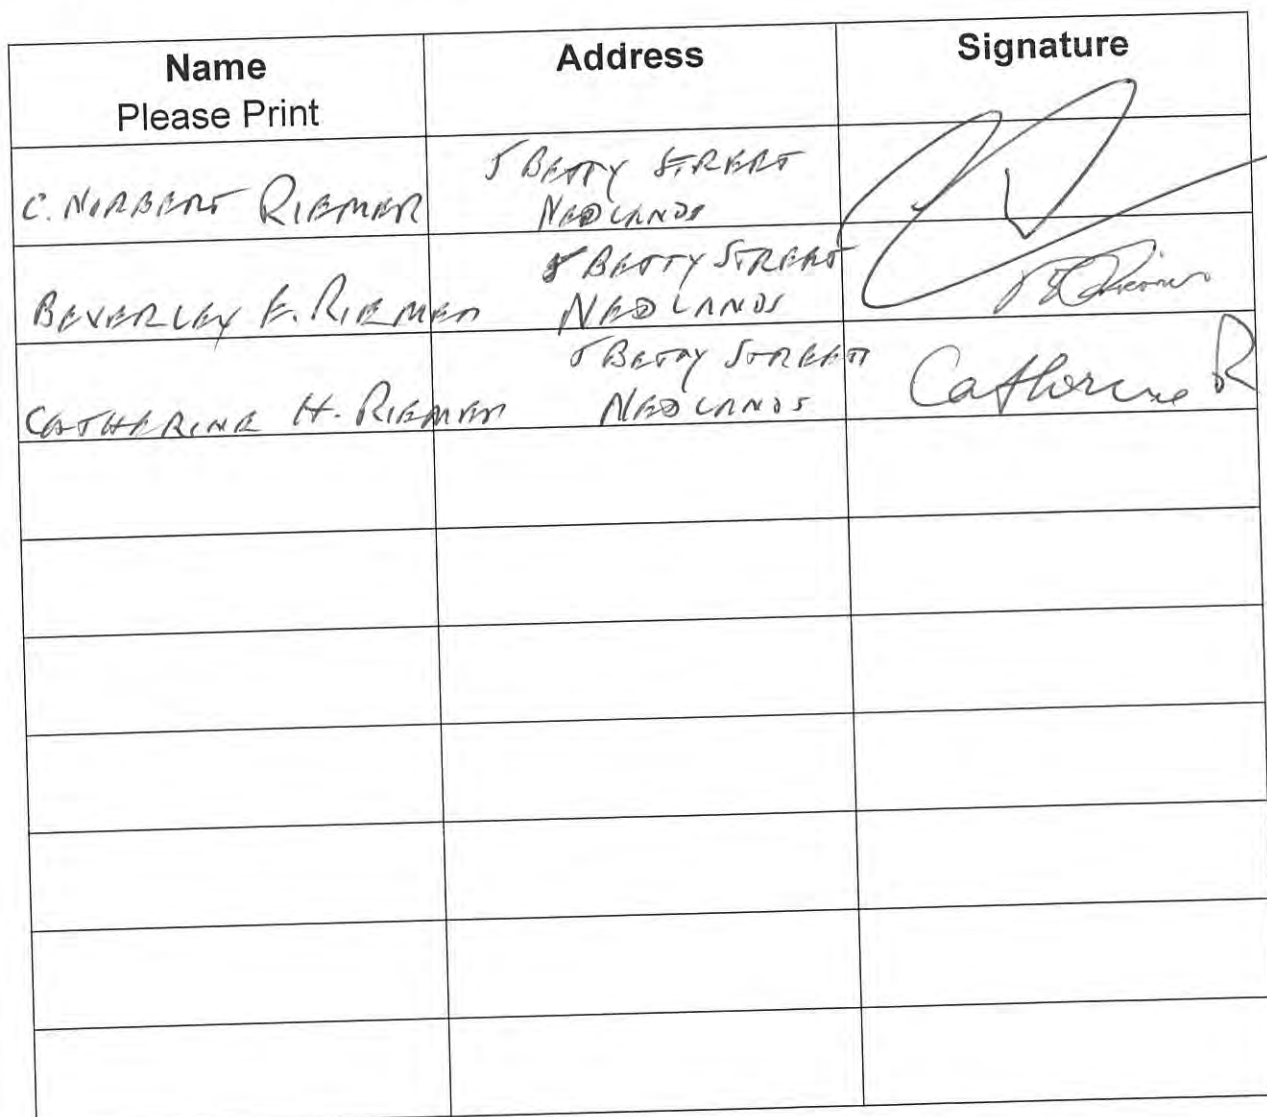 Name Address Signature
Please Print
C. NORBERT RIEMER 5 BETTY STREET
NEDLANDS
BEVERLEY E. RIEMER 5 BETTY STREET
NEDLANDS
CATHERINE H. RIEMER 5 BETTY STREET
NEDLANDS Catherine R